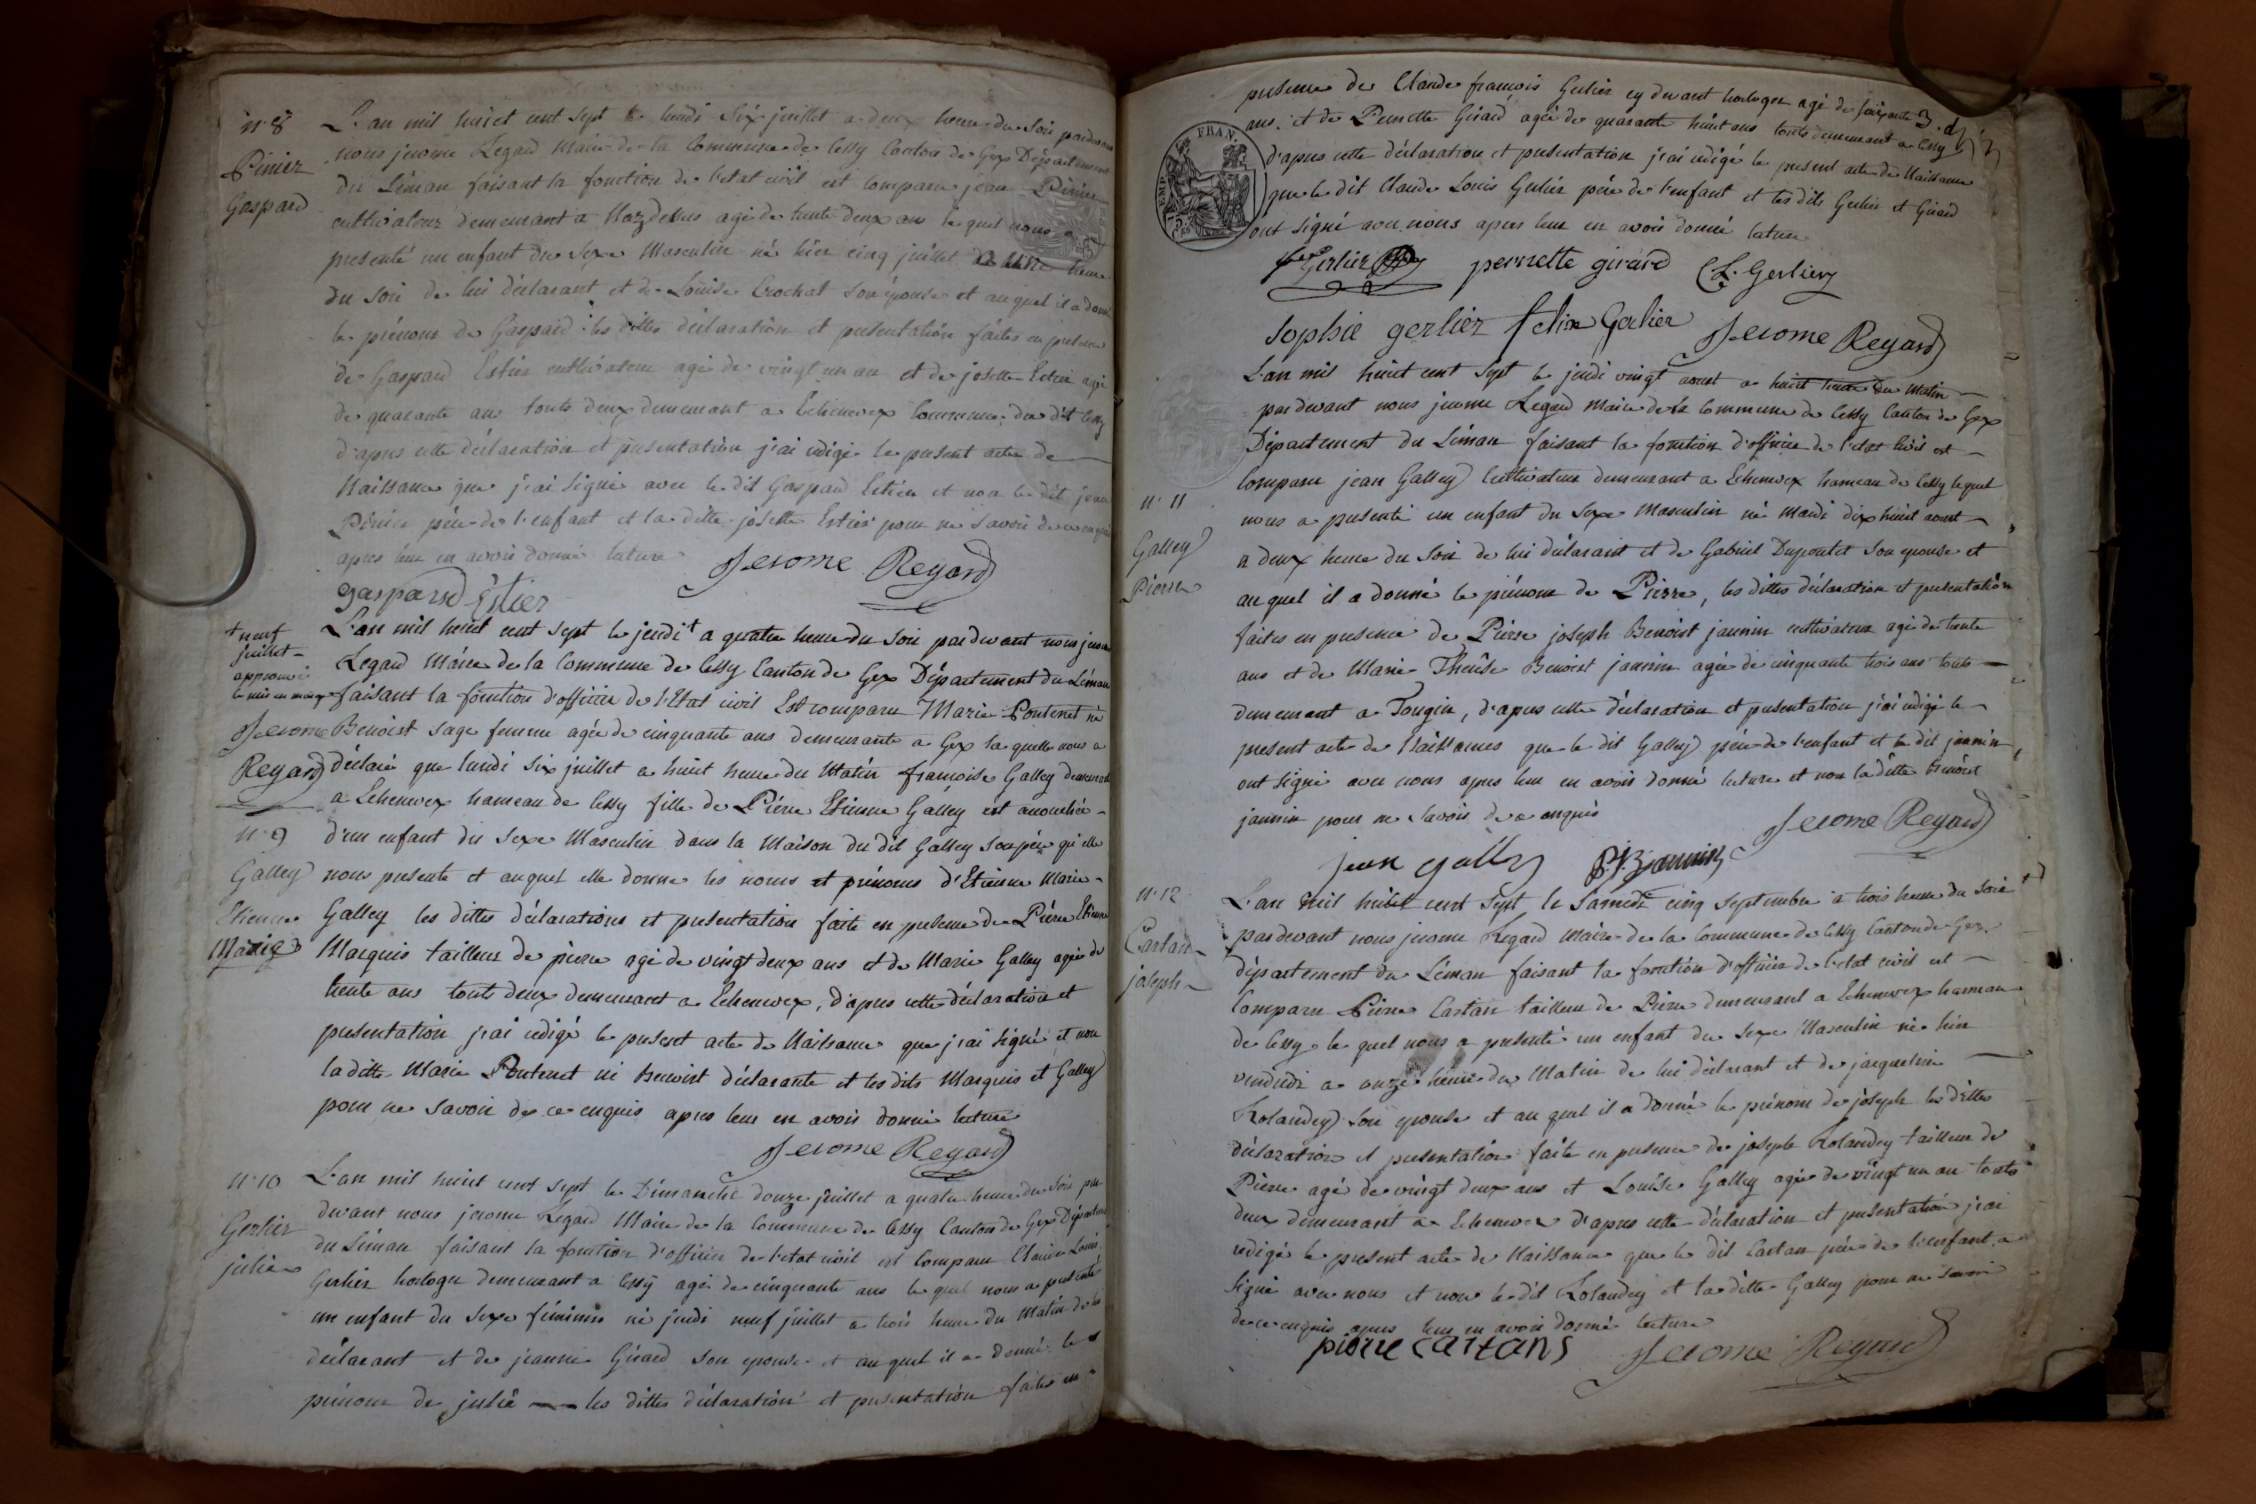 n° 8
Pinier
Gaspard
L'an mil huict cent sept le lundi six juillet a deux heure du soir pardevant
nous jerome Regard Maire de la Commune de Cessy Canton de Gex Département
du Léman faisant la fonction de l'etat civil est comparu jean
cultivateur demeurant a agé de trente deux ans le quel nous a
presenté un enfant du sexe Masculin né hier cinq juillet heure
du soir de lui déclarant et de Louise Crochat son épouse et auquel il a donné
le prénom de Gaspard les dittes déclaration et presentation faites en presence
de Gaspard Estier cultivateur agé de vingt un an et de josette Estier agée
de quarante ans touts deux demeurant a Echenevex Commune du dit Cessy
d'apres cette déclaration et presentation j'ai redigé le present acte de
Naissance que j'ai signé avec le dit Gaspard Estier et non le dit jean
père de l'enfant et la ditte josette Estier pour ne savoir de ce enquis
apres leur en avoir donné lecture
Jerome Regard
gaspard Estier
+ neuf
juillet
approuvé
le mis en marge
Jerome
Regard
L'an mil huict cent sept le jeudi + a quatre heure du soir pardevant nous jerome
Regard Maire de la Commune de Cessy Canton de Gex Département du Léman
faisant la fonction d'officier de l'Etat civil Est comparu Marie Pontenet né
Benoist sage femme agée de cinquante ans demeurante a Gex la quelle nous a
déclaré que lundi six juillet a huict heure du Matin francoise Galley demeurant
a Echenevex hameau de Cessy fille de Piérre Etienne Galley est accouchée
n° 9
Galley
Etienne
Marie
d'un enfant du sexe Masculin dans la Maison du dit Galley son pére qu'elle
nous presente et auquel elle donne les noms et prénoms d'Etienne Marie
Galley les dittes déclarations et presentation faite en presence de Piérre Etienne
Marquis tailleur de pierre agé de vingt deux ans et de Marie Galley agée de
trente ans touts deux demeurant a Echenevex, d'apres cette déclaration et
presentation j'ai redigé le present acte de Naissance que j'ai signé et non
la ditte Marie Pontenet né Benoist déclarante et les dits Marquis et Galley
pour ne savoir de ce enquis apres leur en avoir donné lecture
Jerome Regard
n° 10
Gerlier
julie
L'an mil huict cent sept le Dimanche douze juillet a quatre heure du soir par
devant nous jerome Regard Maire de la Commune de Cessy Canton de Gex Département
du Léman faisant la fonction d'officier de l'etat civil est comparu Claude Louis
Gerlier horloger demeurant a Cessy agé de cinquante ans le quel nous a presenté
un enfant du sexe féminin né jeudi neuf juillet a trois heure du Matin de lui
déclarant et de jeanne Girard son epouse et auquel il a donné le
prénom de julie les dittes déclaration et presentation faites en
presence de Claude francois Gerlier cy devant horloger agé de soixante 3.
ans et de Pernette Girard agée de quarante huict ans touts demeurant a Cessy
d'apres cette déclaration et presentation j'ai redigé le present acte de Naissance
que le dit Claude Louis Gerlier pére de l'enfant et les dits Gerlier et Girard
ont signé avec nous apres leur en avoir donné lecture
EMP. FRAN.
Gerlier pernette girard C L. Gerlier
sophie gerlier felix Gerlier Jerome Regard
L'an mil huict cent sept le jeudi vingt aoust a huict heure du Matin
pardevant nous jerome Regard Maire de la Commune de Cessy Canton de Gex
Département du Léman faisant la fonction d'officier de l'etat civil est
comparu jean Galley Cultivateur demeurant a Echenevex hameau de Cessy lequel
n° 11
Galley
Pierre
nous a presenté un enfant du sexe Masculin né Mardi dix huict aoust
a deux heure du soir de lui déclarant et de Gabriel Dupontet son epouse et
auquel il a donné le prénom de Pierre, les dittes déclaration et presentation
faites en presence de Piérre joseph Benoist jannin cultivateur agé de trente
ans et de Marie Therése Benoist jannin agée de cinquante trois ans touts
demeurant a Tougin, d'apres cette déclaration et presentation j'ai redigé le
present acte de Naissances que le dit Galley pére de l'enfant et le dit jannin
ont signé avec nous apres leur en avoir donné lecture et non la ditte Benoist
jannin pour ne savoir de ce enquis
Jerome Regard
jean gally P. j. B. jannin
n° 12
Cartan
joseph
L'an mil huict cent sept le Samedi cinq septembre a trois heure du soir
pardevant nous jerome Regard Maire de la Commune de Cessy Canton de Gex
département du Léman faisant la fonction d'officier de l'etat civil est
Comparu Piérre Cartan tailleur de Pierre demeurant a Echenevex hameau
de Cessy le quel nous a presenté un enfant du sexe Masculin né hier
vendredi a onze heure du Matin de lui déclarant et de jacqueline
Rolandey son epouse et au quel il a donné le prénom de joseph les dittes
déclaration et presentation faite en presence de joseph Rolandey tailleur de
Pierre agé de vingt deux ans et Louise Galley agée de vingt un an touts
deux demeurant a Echenevex d'apres cette déclaration et presentation j'ai
redigé le present acte de Naissance que le dit Cartan pére de l'enfant a
signé avec nous et non le dit Rolandey et la ditte Galley pour ne savoir
de ce enquis apres leur en avoir donné lecture
pierre cartans Jerome Regard